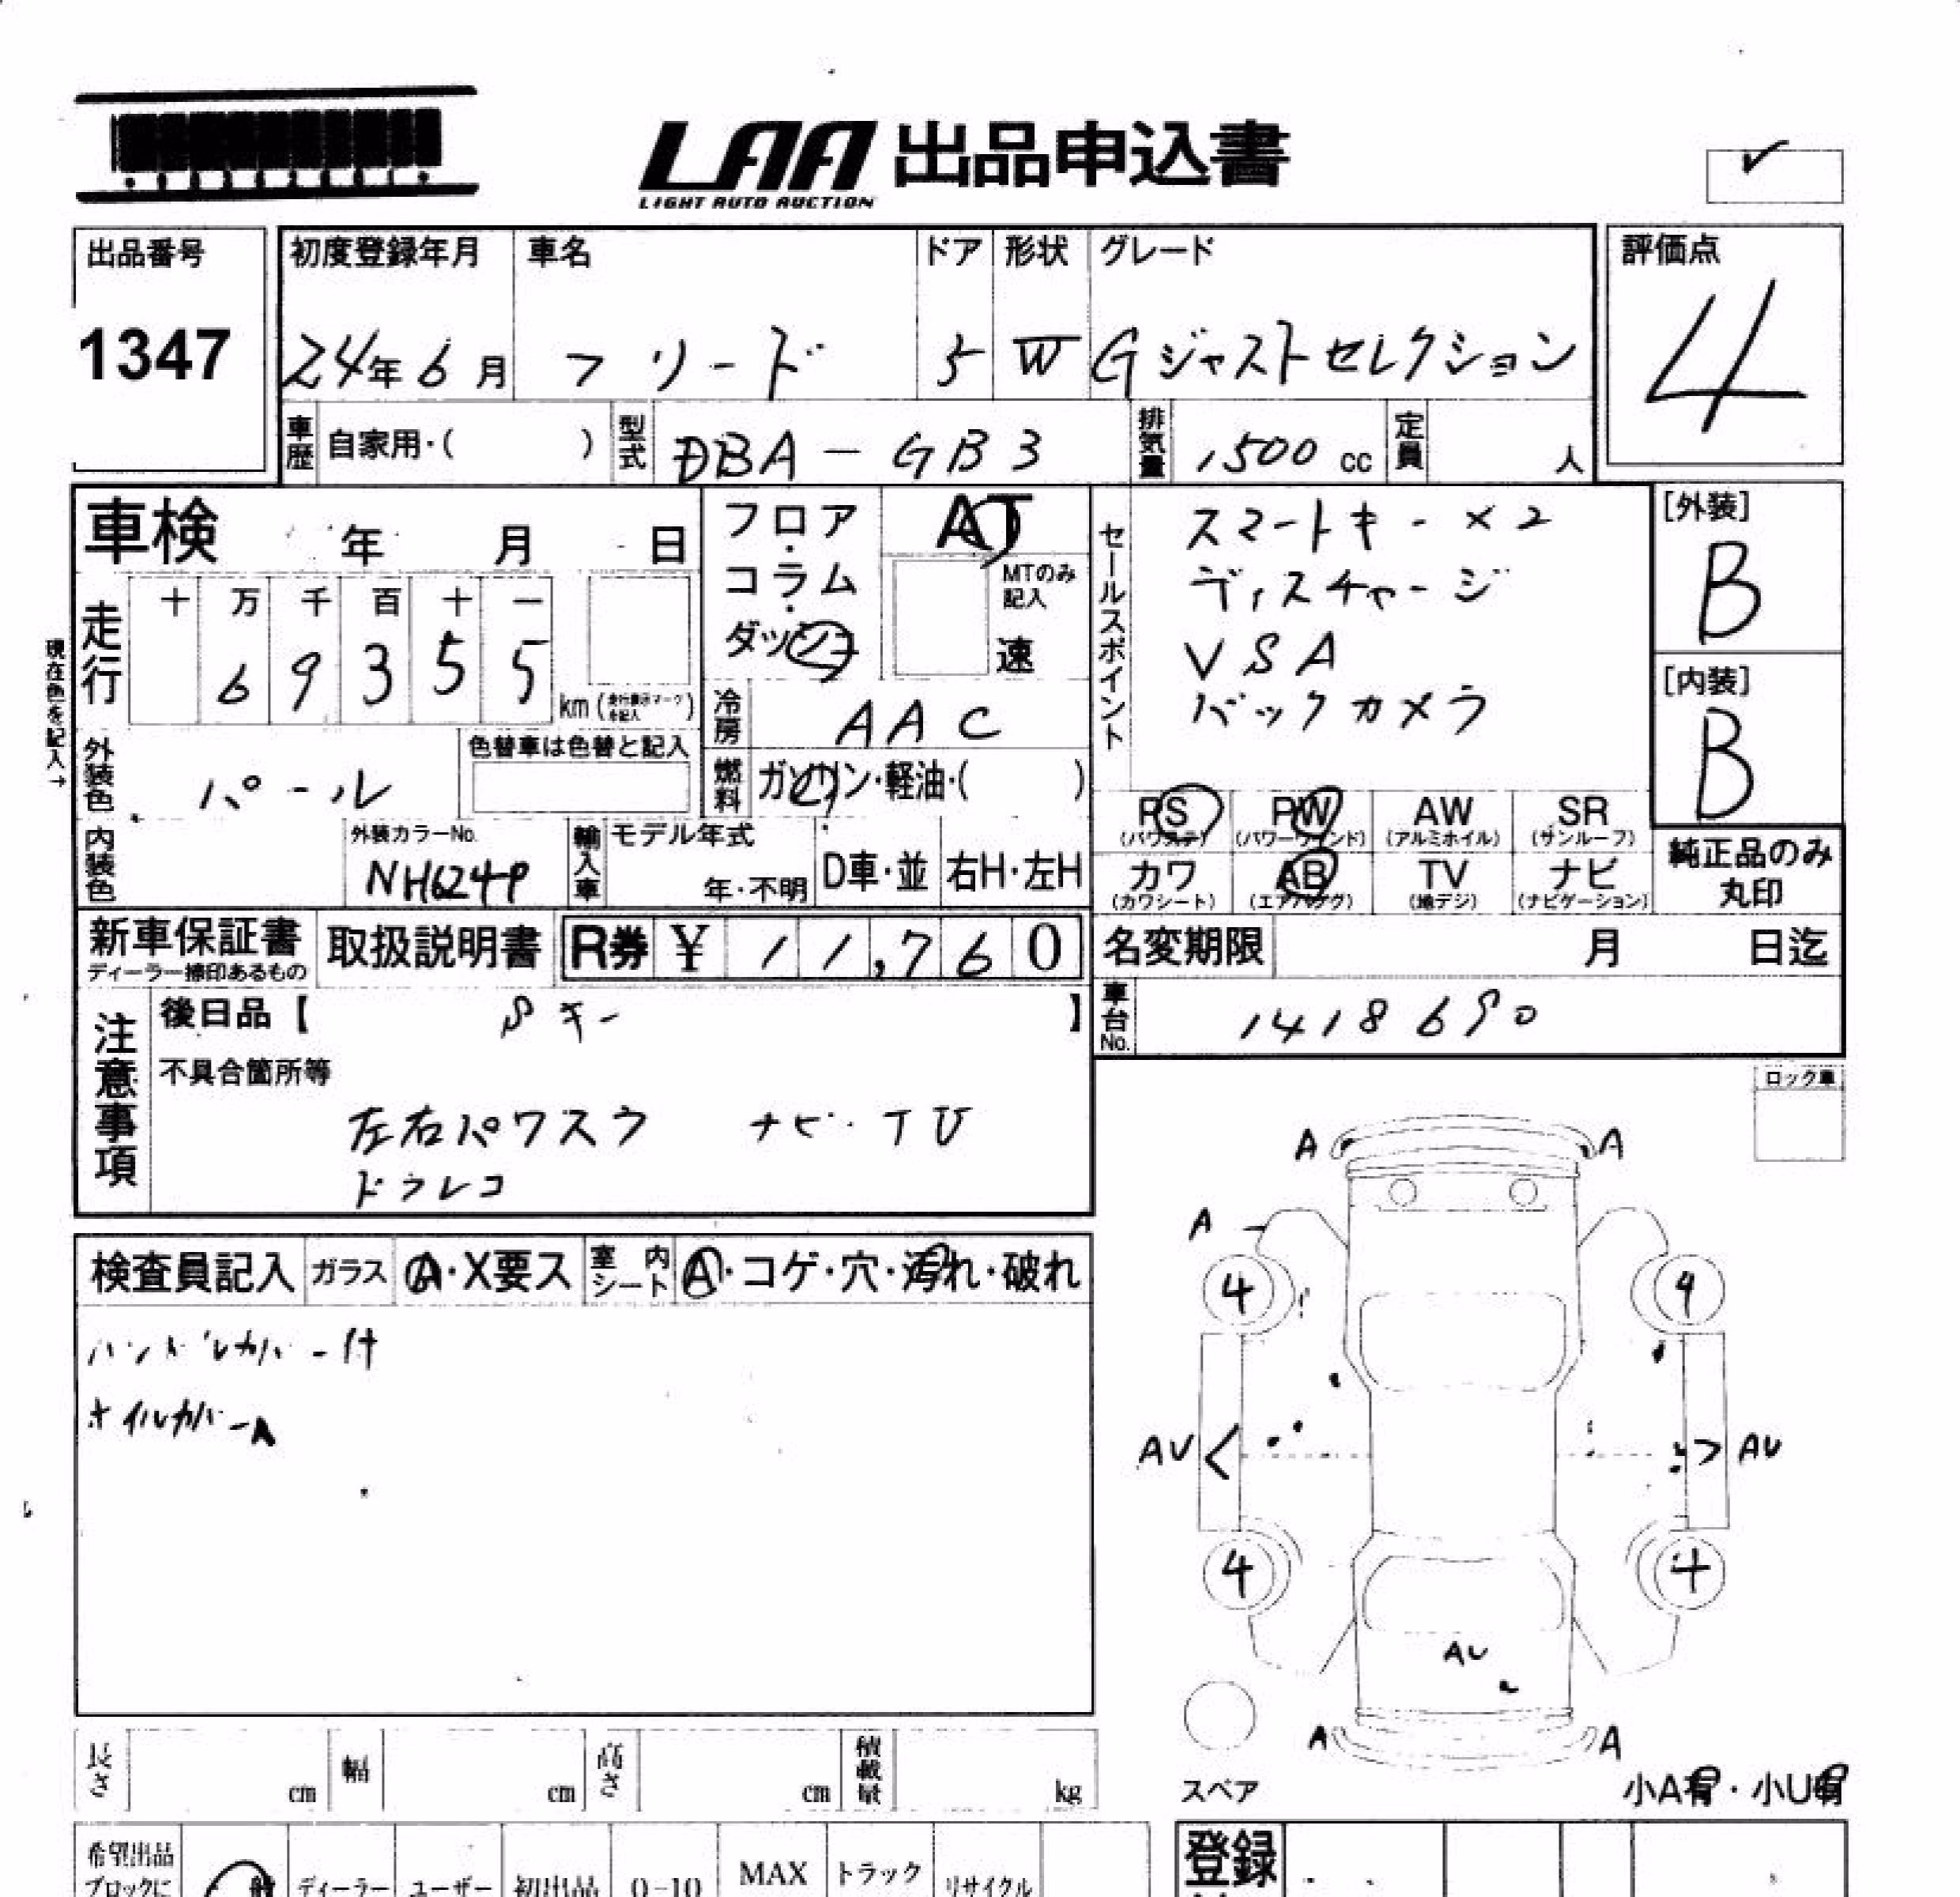 LAA 出品申込書
LIGHT AUTO AUCTION
出品番号
1347
初度登録年月 車名 ドア 形状 グレード
24年6月 フリード 5 W Gジャストセレクション
評価点
4
車歴 自家用・( ) 型式 DBA-GB3 排気量 1500 cc 定員 人
車検 年 月 日
フロア・コラム・ダッシュ
AT
MTのみ記入
速
セールスポイント
スマートキー×2
ディスチャージ
VSA
バックカメラ
[外装]
B
[内装]
B
現在色を記入→
走行
十 万 千 百 十 一
6 9 3 5 5
km (走行表示マークを記入)
冷房 AAC
外装色 パール
色替車は色替と記入
燃料 ガソリン・軽油・( )
PS PW AW SR
(パワステ) (パワーウィンド) (アルミホイル) (サンルーフ)
カワ AB TV ナビ
(カワシート) (エアバッグ) (地デジ) (ナビゲーション)
純正品のみ
丸印
内装色
外装カラーNo.
NH624P
輸入車 モデル年式
年・不明 D車・並 右H・左H
新車保証書 取扱説明書 R券 ¥ 11,760
ディーラー捺印あるもの
名変期限 月 日迄
車台No. 1418690
注意事項
後日品【 Sキー 】
不具合箇所等
左右パワスラ ナビ・TV
ドラレコ
ロック車
検査員記入 ガラス A・X要ス 室内シート A・コゲ・穴・汚れ・破れ
ハンドルカバー付
オイルカバーA
A A
A
4 4
AU AU
4 4
AU
A A
スペア
小A有・小U有
長さ cm 幅 cm 高さ cm 積載量 kg
希望出品
ブロックに 般 ディーラー ユーザー 初出品 0-10 MAX トラック リサイクル
登録